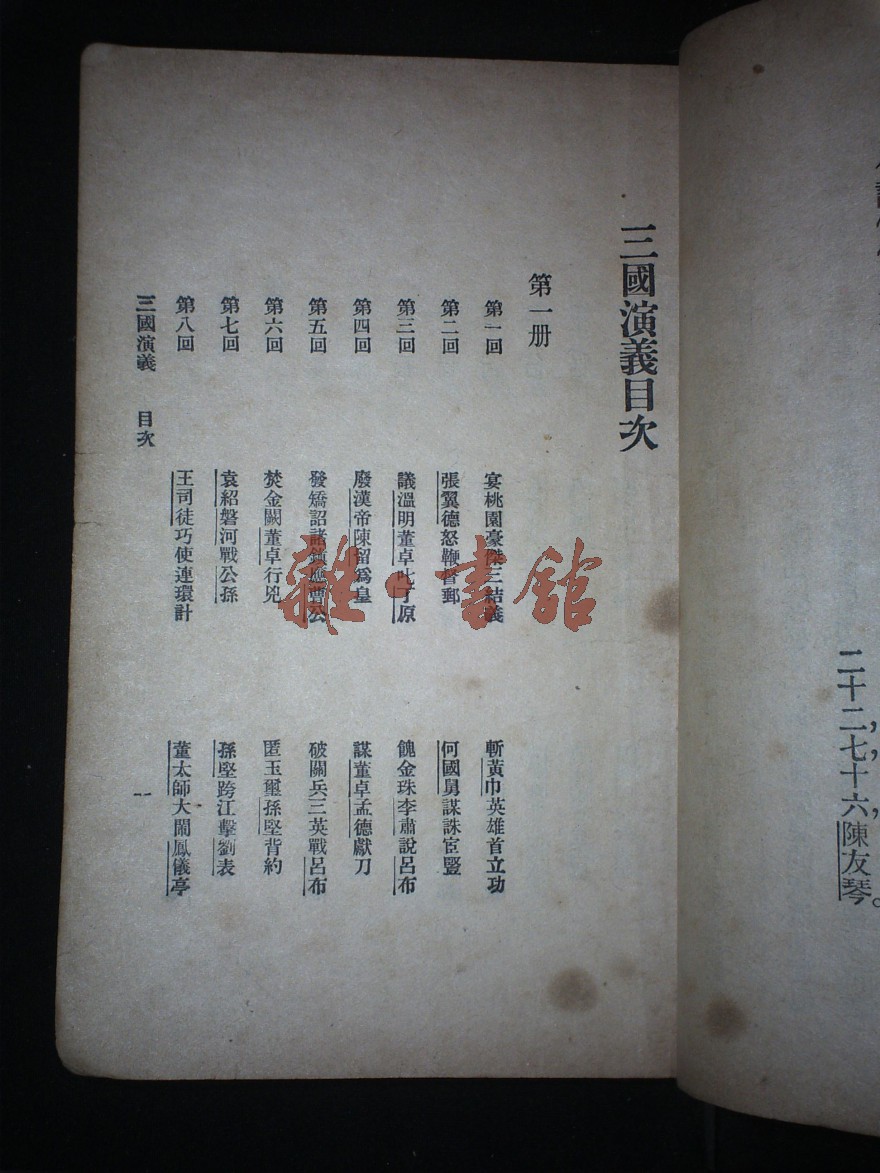 二十二，七，十六，陳友琴。
三國演義目次
第一册
第一回 宴桃園豪傑三結義 斬黃巾英雄首立功
第二回 張翼德怒鞭督郵 何國舅謀誅宦豎
第三回 議溫明董卓叱丁原 餽金珠李肅說呂布
第四回 廢漢帝陳留爲皇 謀董卓孟德獻刀
第五回 發矯詔諸鎮應曹公 破關兵三英戰呂布
第六回 焚金闕董卓行兇 匿玉璽孫堅背約
第七回 袁紹磐河戰公孫 孫堅跨江擊劉表
第八回 王司徒巧使連環計 董太師大鬧鳳儀亭
三國演義 目次 一
雜·書館